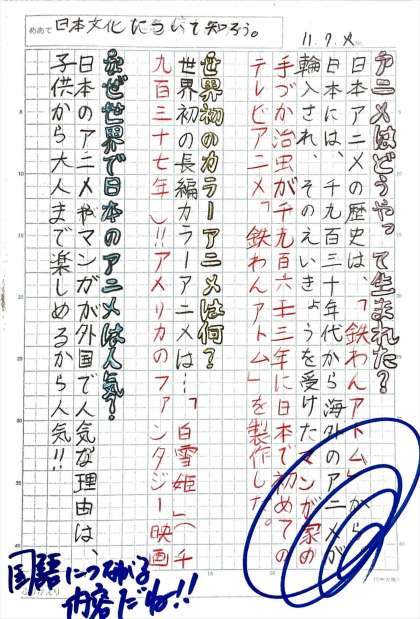 めあて 日本文化について知ろう。
11.7.火
アニメはどうやって生まれた?
日本アニメの歴史は、「鉄わんアトム」から
日本には、千九百三十年代から海外のアニメが
輸入され、そのえいきょうを受けたマンガ家の
手づか治虫が千九百六十三年に日本で初めての
テレビアニメ「鉄わんアトム」を製作した。
世界初のカラーアニメは何?
世界初の長編カラーアニメは…「白雪姫」(千
九百三十七年)!!アメリカのファンタジー映画
なぜ世界で日本のアニメは人気?
日本のアニメやマンガが外国で人気な理由は、
子供から大人まで楽しめるから人気!!
国語につながる
内容だね!!